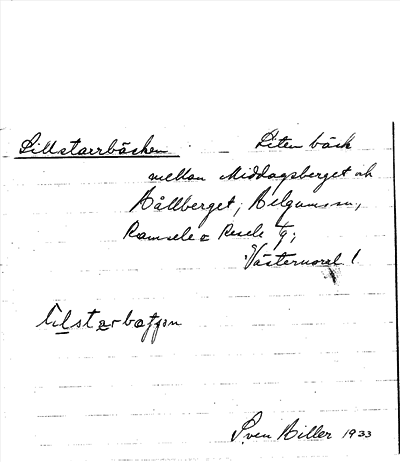 Lillstarrbäcken Liten bäck
mellan Middagsberget och
Hållberget, Helgumssn,
Ramsele o Resele tg;
Västernorrl l
Sven Hiller 1933